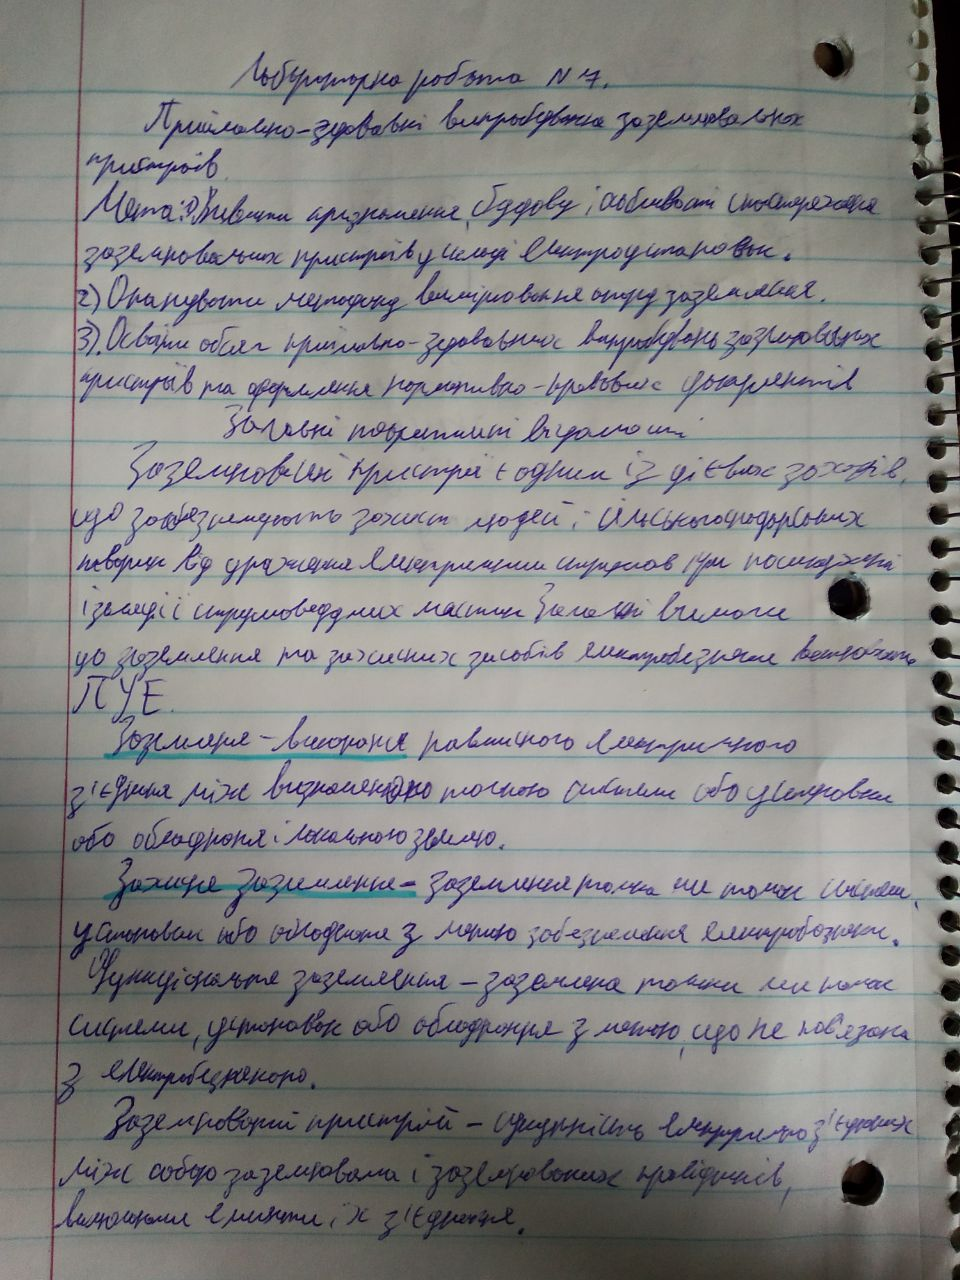 Лабораторна робота №7.
Приймально-здавальні випробування заземлювальних
пристроїв.
Мета: 1) Вивчити призначення, будову і особливості спостереження
заземлювальних пристроїв у складі електроустановок.
2) Опанувати методику вимірювання опору заземлення.
3). Освоїти обсяг приймально-здавальних випробувань заземлювальних
пристроїв та оформлення нормативно-правових документів
Загальні теоретичні відомості
Заземлювальні пристрої є одним із дієвих заходів,
що забезпечують захист людей і сільськогосподарських
тварин від ураження електричним струмом при пошкодженні
ізоляції струмоведучих частин Загальні вимоги
до заземлення та захисних засобів електробезпеки
ПУЕ.
Заземлення – виконання навмисного електричного
з'єднання між визначеною точкою системи або установки
або обладнання і локальною землею.
Захисне заземлення – заземлення точки чи точок системи,
установки або обладнання з метою забезпечення електробезпеки.
Функціональне заземлення – заземлення точки чи точок
системи, установок або обладнання з метою, що не пов'язана
з електробезпекою.
Заземлювальний пристрій – сукупність електрично з'єднаних
між собою заземлювача і заземлювальних провідників,
включаючи елементи їх з'єднання.